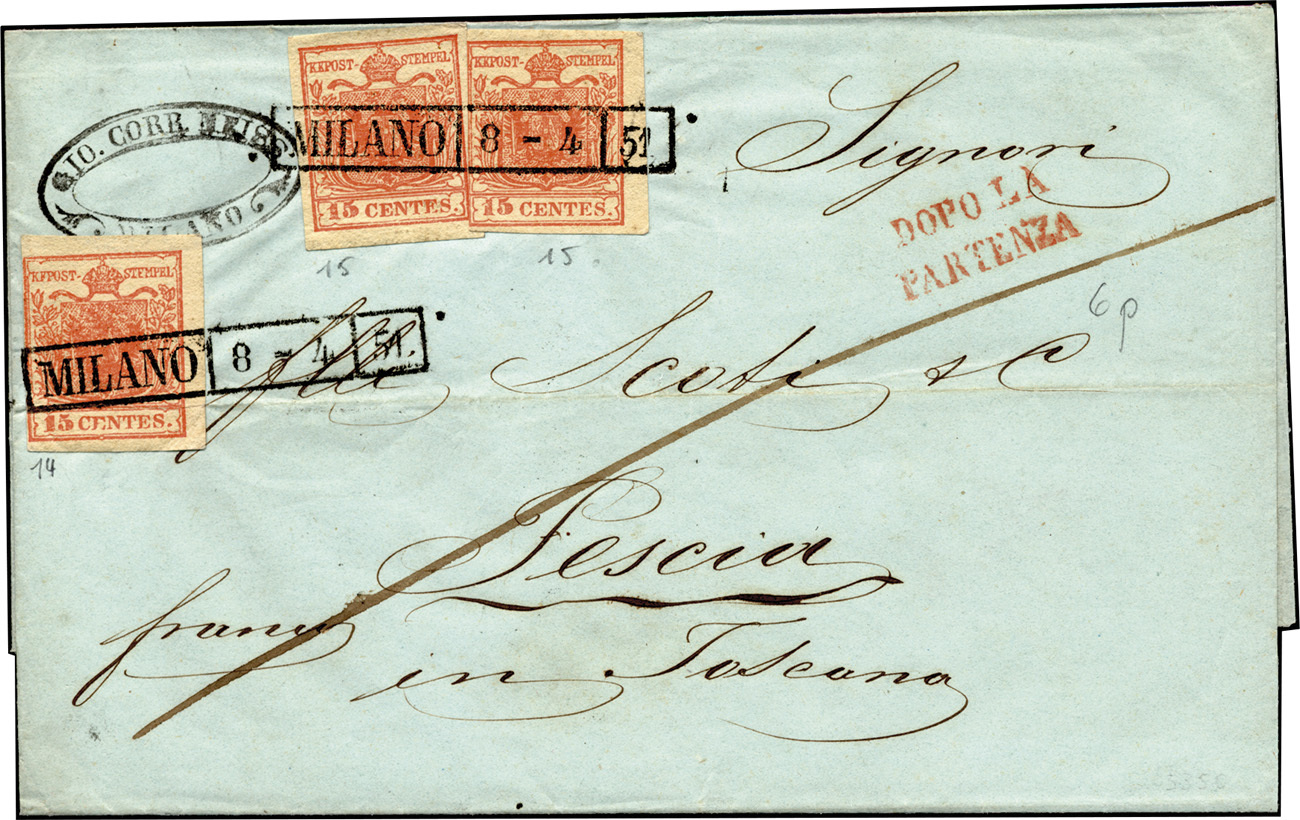 GIO. CORR. WEISS
MILANO
KKPOST-STEMPEL
15 CENTES.
KKPOST-STEMPEL
15 CENTES.
MILANO 8 - 4 51.
15
15.
Signori
DOPO LA
PARTENZA
6 p
KKPOST-STEMPEL
15 CENTES.
MILANO 8 - 4 51.
14
flli Scoti & C
Pescia
franco in Toscana